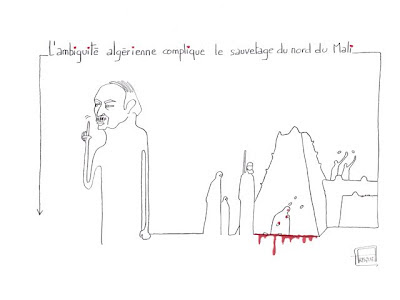 L'ambiguité algérienne complique le sauvetage du nord du Mali